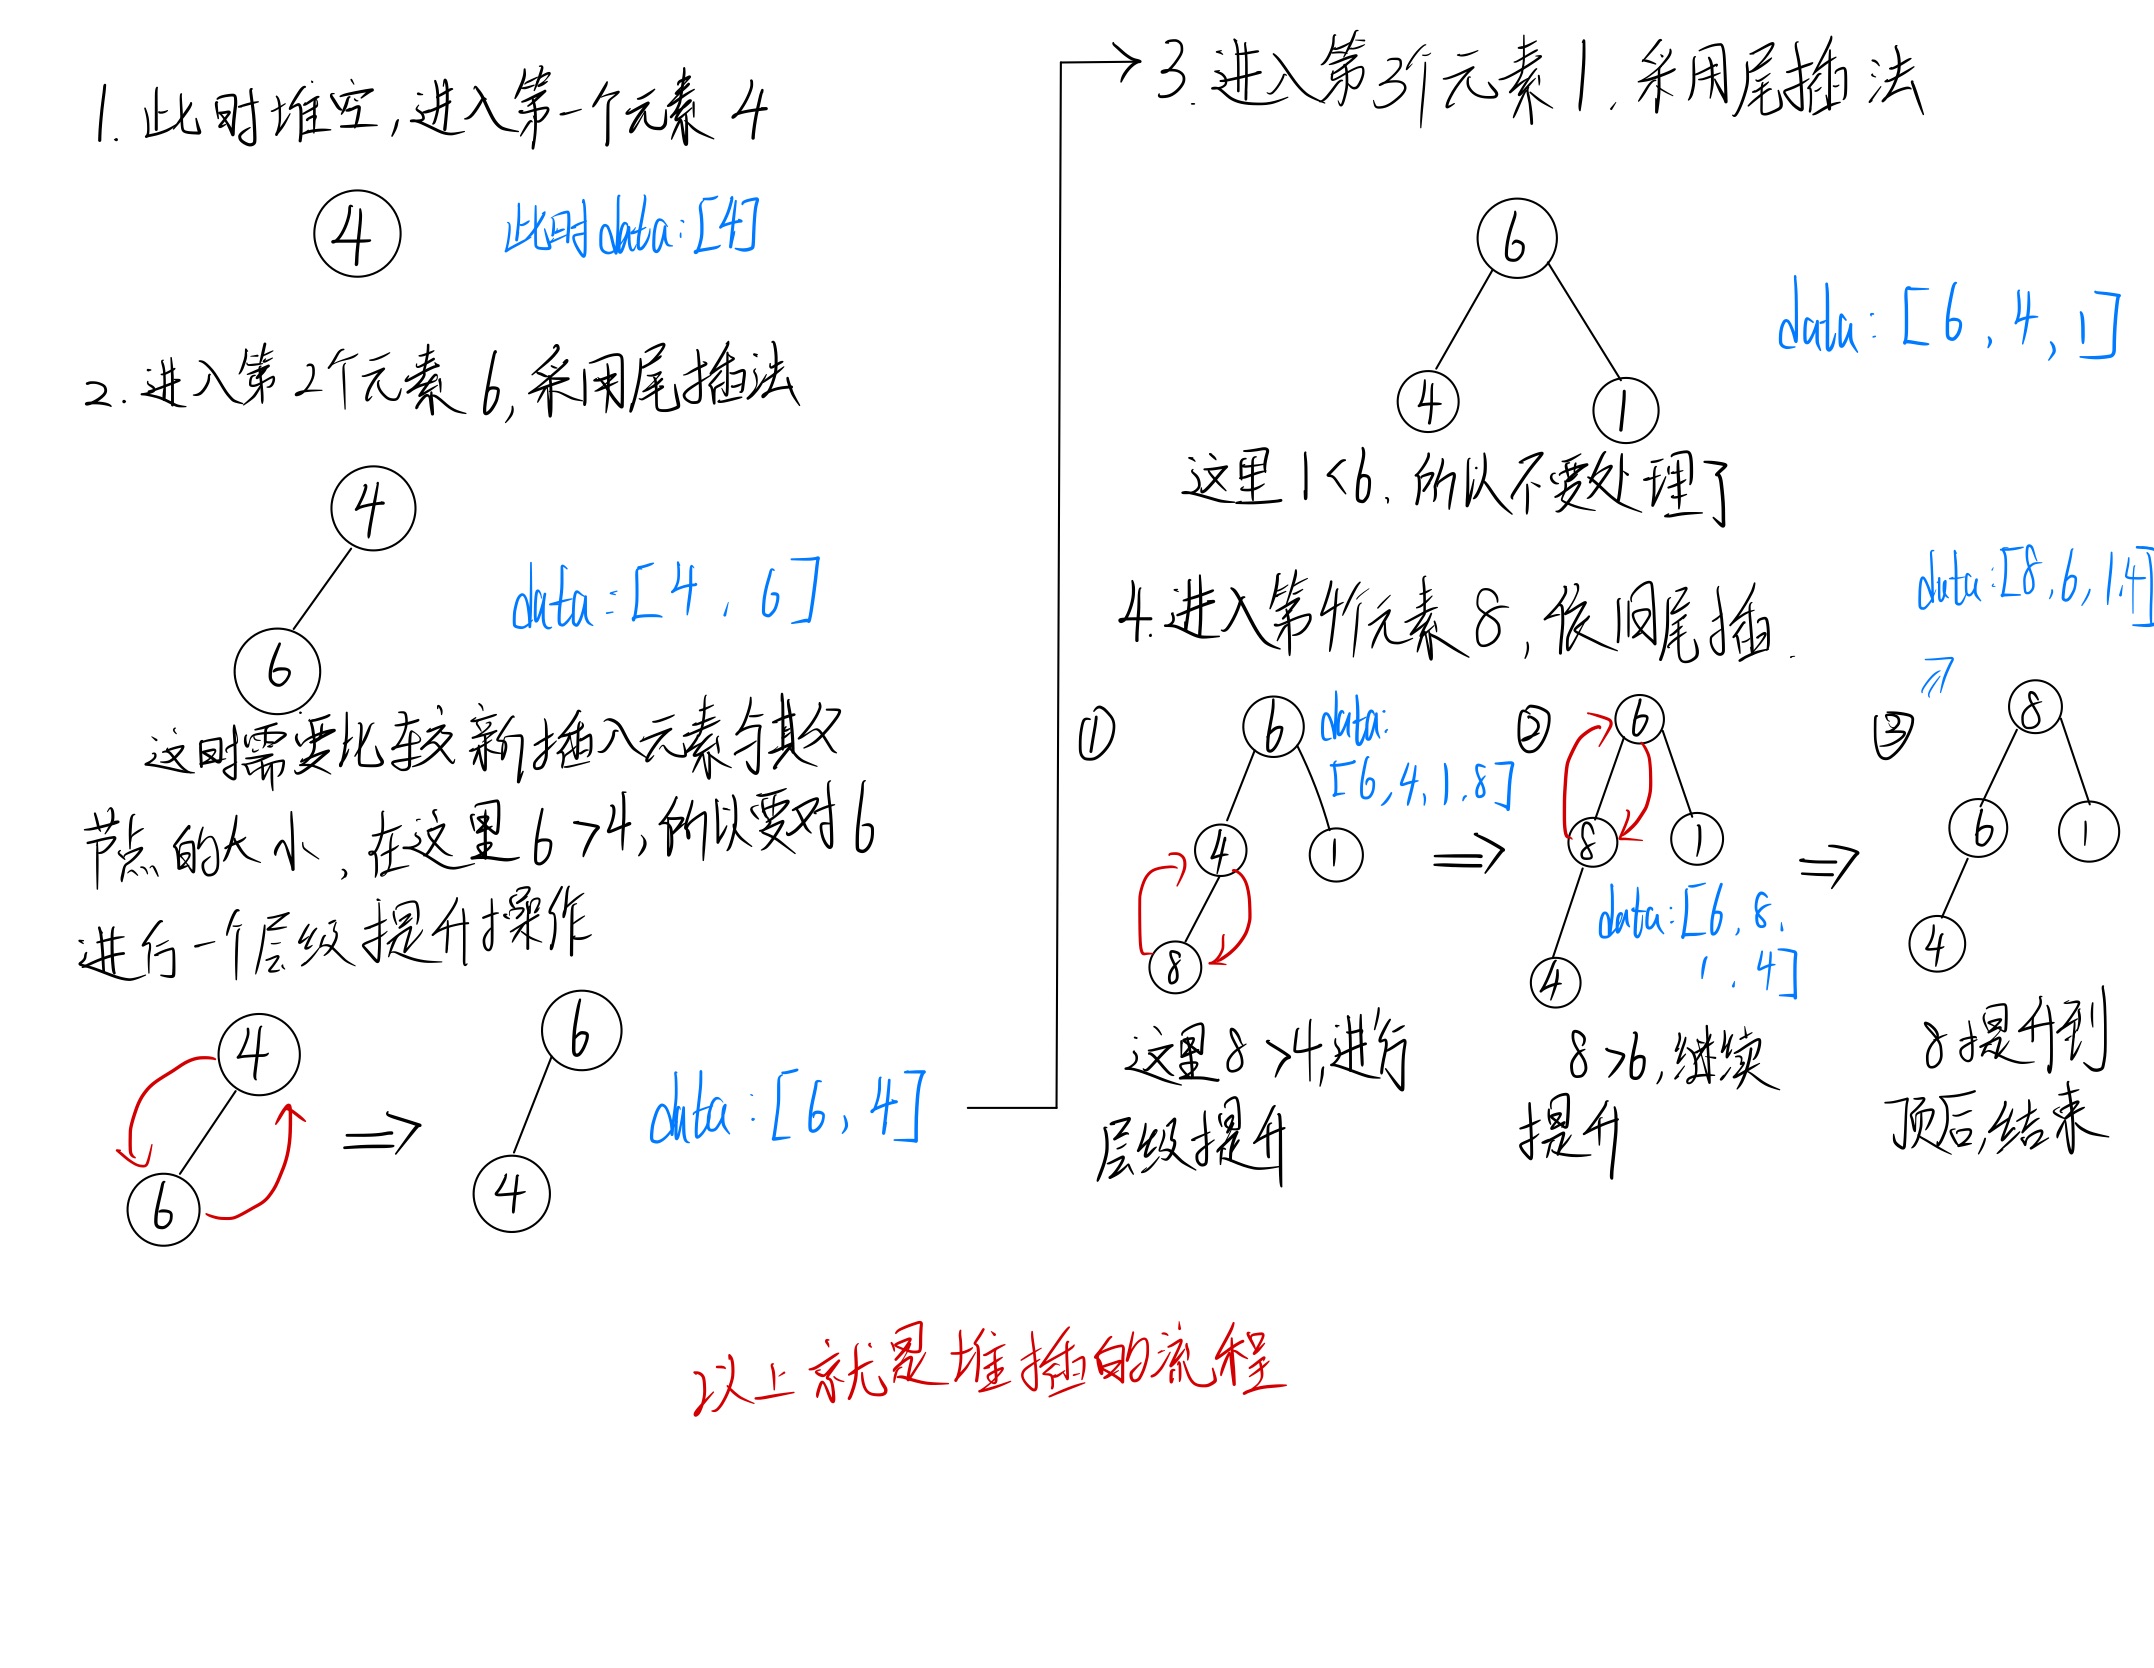 1. 此时堆空,进入第一个元素 4
4
此时data:[4]
2.进入第2个元素 6,采用尾插法
4
data:[4,6]
6
这时需要比较新插入元素与其父
节点的大小,在这里6>4,所以要对6
进行一个层级提升操作
4
6
6
4
data:[6,4]
3.进入第3个元素1.采用尾插法
6
data:[6,4,1]
4
1
这里1<6.所以不要处理了
4.进入第4个元素8,依旧尾插.
①
6
data:
[6,4,1,8]
4
1
8
这里8>4,进行
层级提升
②
6
8
1
data:[6,8,
1,4]
4
8>6,继续
提升
data:[8,6,1,4]
③
8
6
1
4
8提升到
顶后,结束
以上就是堆插的流程